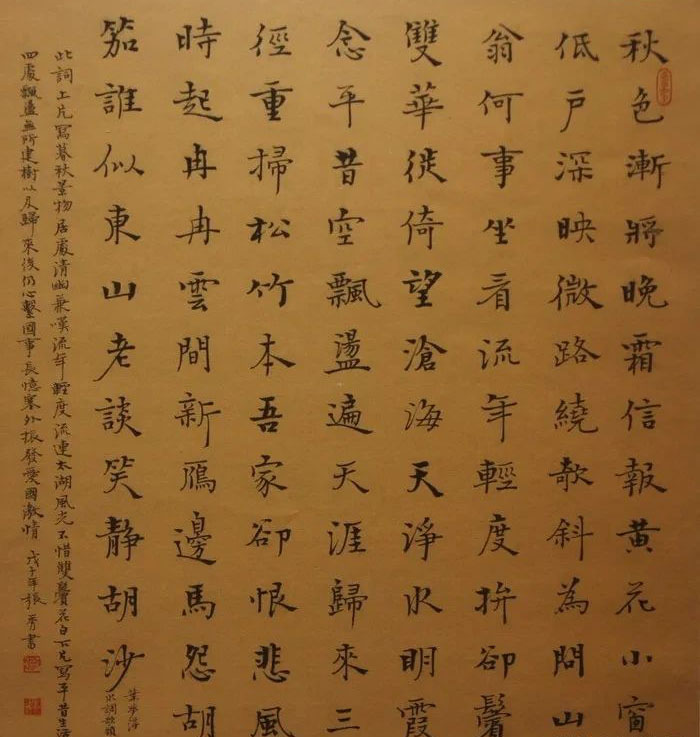 秋色漸將晚霜信報黃花小窗
低戶深映微路繞欹斜為問山
翁何事坐看流年輕度拚卻鬢
雙華徙倚望滄海天淨水明霞
念平昔空飄盪遍天涯歸來三
徑重掃松竹本吾家卻恨悲風
時起冉冉雲間新鴈邊馬怨胡
笳誰似東山老談笑靜胡沙
葉夢得
水調歌頭
此詞上片寫暮秋景物居處清幽兼嘆流年輕度流連太湖風光不惜雙鬢花白下片寫平昔生活
四處飄盪無所建樹以及歸來後仍心繫國事長憶塞外振發愛國激情 戊子年張書